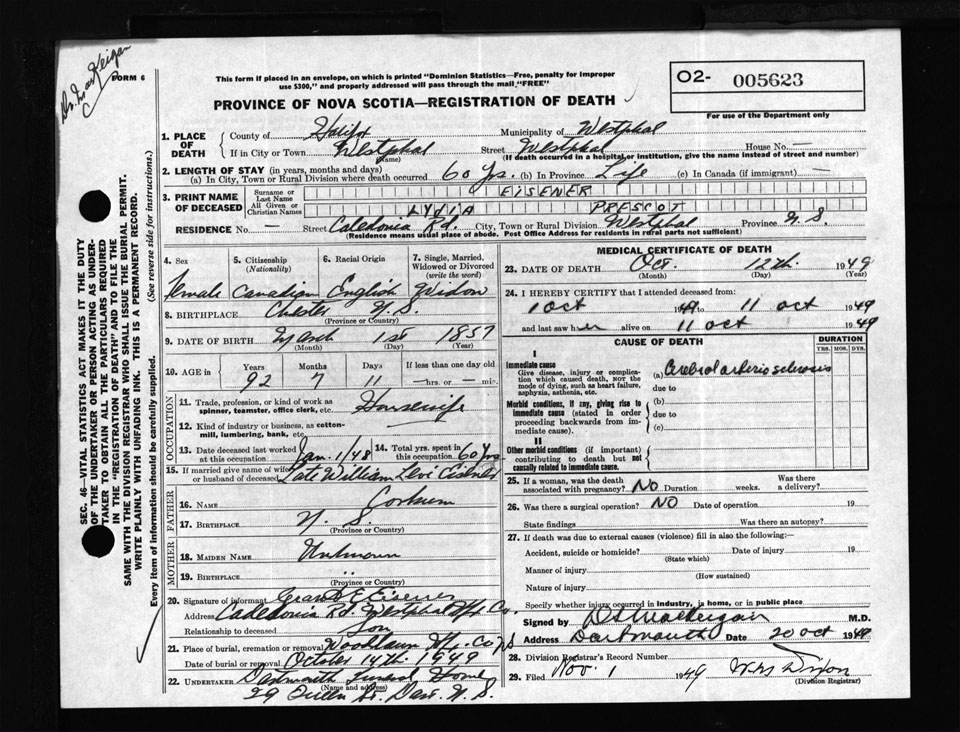 Dr. MacKeigan
FORM 6
This form if placed in an envelope, on which is printed "Dominion Statistics—Free, penalty for improper
use $300," and properly addressed will pass through the mail "FREE"
O2- 005623
For use of the Department only
PROVINCE OF NOVA SCOTIA—REGISTRATION OF DEATH
1. PLACE OF DEATH County of Halifax Municipality of Westphal
If in City or Town Westphal Street Westphal House No. —
(Name) (If death occurred in a hospital or institution, give the name instead of street and number)
2. LENGTH OF STAY (in years, months and days)
(a) In City, Town or Rural Division where death occurred 60 Yrs. (b) In Province Life (c) In Canada (if immigrant) —
3. PRINT NAME OF DECEASED Surname or Last Name EISENER
All Given or Christian Names LYDIA PRESCOT
RESIDENCE No. — Street Caledonia Rd. City, Town or Rural Division Westphal Province N.S.
(Residence means usual place of abode. Post Office Address for residents in rural parts not sufficient)
4. Sex 5. Citizenship (Nationality) 6. Racial Origin 7. Single, Married, Widowed or Divorced (write the word)
female Canadian English Widow
8. BIRTHPLACE Chester N.S.
(Province or Country)
9. DATE OF BIRTH March 1st 1857
(Month) (Day) (Year)
10. AGE in Years Months Days If less than one day old
92 7 11 — hrs. or — min.
OCCUPATION
11. Trade, profession, or kind of work as spinner, teamster, office clerk, etc. Housewife
12. Kind of industry or business, as cotton-mill, lumbering, bank, etc.
13. Date deceased last worked at this occupation Jan. 1/48 14. Total yrs. spent in this occupation 60 Yrs.
15. If married give name of wife or husband of deceased Late William Levi Eisener
FATHER
16. NAME Corkum
17. BIRTHPLACE N. S.
(Province or Country)
MOTHER
18. MAIDEN NAME Unknown
19. BIRTHPLACE "
(Province or Country)
20. Signature of informant Grant E Eisener
Address Caledonia Rd. Westphal Hfx Co.
Relationship to deceased Son
21. Place of burial, cremation or removal Woodlawn Hfx. Co NS
Date of burial or removal October 14th. 1949
22. UNDERTAKER Dartmouth Funeral Home
(Name and address)
29 Queen St. Dart. N. S.
MEDICAL CERTIFICATE OF DEATH
23. DATE OF DEATH Oct. 12th. 1949
(Month) (Day) (Year)
24. I HEREBY CERTIFY that I attended deceased from:
1 oct 1949 to 11 oct 1949
and last saw her alive on 11 oct 1949
CAUSE OF DEATH DURATION
YRS. MOS. DYS.
I
Immediate cause
Give disease, injury or complication which caused death, NOT the mode of dying, such as heart failure, asphyxia, asthenia, etc.
(a) Cerebral arterio sclerosis
due to
Morbid conditions, if any, giving rise to immediate cause (stated in order proceeding backwards from immediate cause).
(b)
due to
(c)
II
Other morbid conditions (if important) contributing to death but not causally related to immediate cause.
25. If a woman, was the death associated with pregnancy? NO Duration weeks. Was there a delivery?
26. Was there a surgical operation? NO Date of operation 19
State findings Was there an autopsy?
27. If death was due to external causes (violence) fill in also the following:—
Accident, suicide or homicide? Date of injury 19
(State which)
Manner of injury
(How sustained)
Nature of injury
Specify whether injury occurred in industry, in home, or in public place
Signed by D S MacKeigan M.D.
Address Dartmouth Date 20 oct 1949
28. Division Registrar's Record Number
29. Filed Nov. 1 1949
(Division Registrar)
SEC. 46—VITAL STATISTICS ACT MAKES IT THE DUTY
OF THE UNDERTAKER OR PERSON ACTING AS UNDER-
TAKER TO OBTAIN ALL THE PARTICULARS REQUIRED
IN THE "REGISTRATION OF DEATH" AND TO FILE THE
SAME WITH THE DIVISION REGISTRAR WHO SHALL ISSUE THE BURIAL PERMIT.
WRITE PLAINLY WITH UNFADING INK. THIS IS A PERMANENT RECORD.
Every item of information should be carefully supplied. (See reverse side for instructions.)